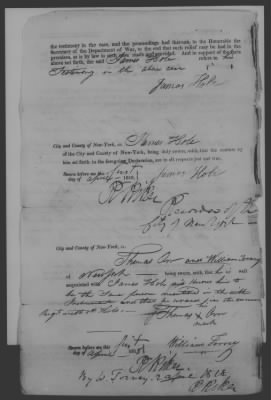 the testimony in the case, and the proceedings had thereon, to the Honorable the
Secretary of the Department of War, to the end that such relief may be had in the
premises, as is by law in such case made and provided. And in support of the facts
above set forth, the said James Hole refers to his
Testimony in the above case
James Hole
City and County of New-York, ss. James Hole
of the City and County of New-York, being duly sworn, saith, that the matters by
him set forth in the foregoing Declaration, are in all respects just and true.
Sworn before me this first
day of April 1818,
James Hole
R Riker
Recorder of the
City of New York
City and County of New-York, ss.
Thomas Orr and William Torrey
of New York being sworn, saith, that he is well
acquainted with James Hole and knows him to
be the same person mentioned in the
and that he served in the
Regt with Hole.
Thomas Orr
mark
Sworn before me this first
day of April 1818
William Torrey
R Riker
By W. Torrey 2 April 1818
R Riker